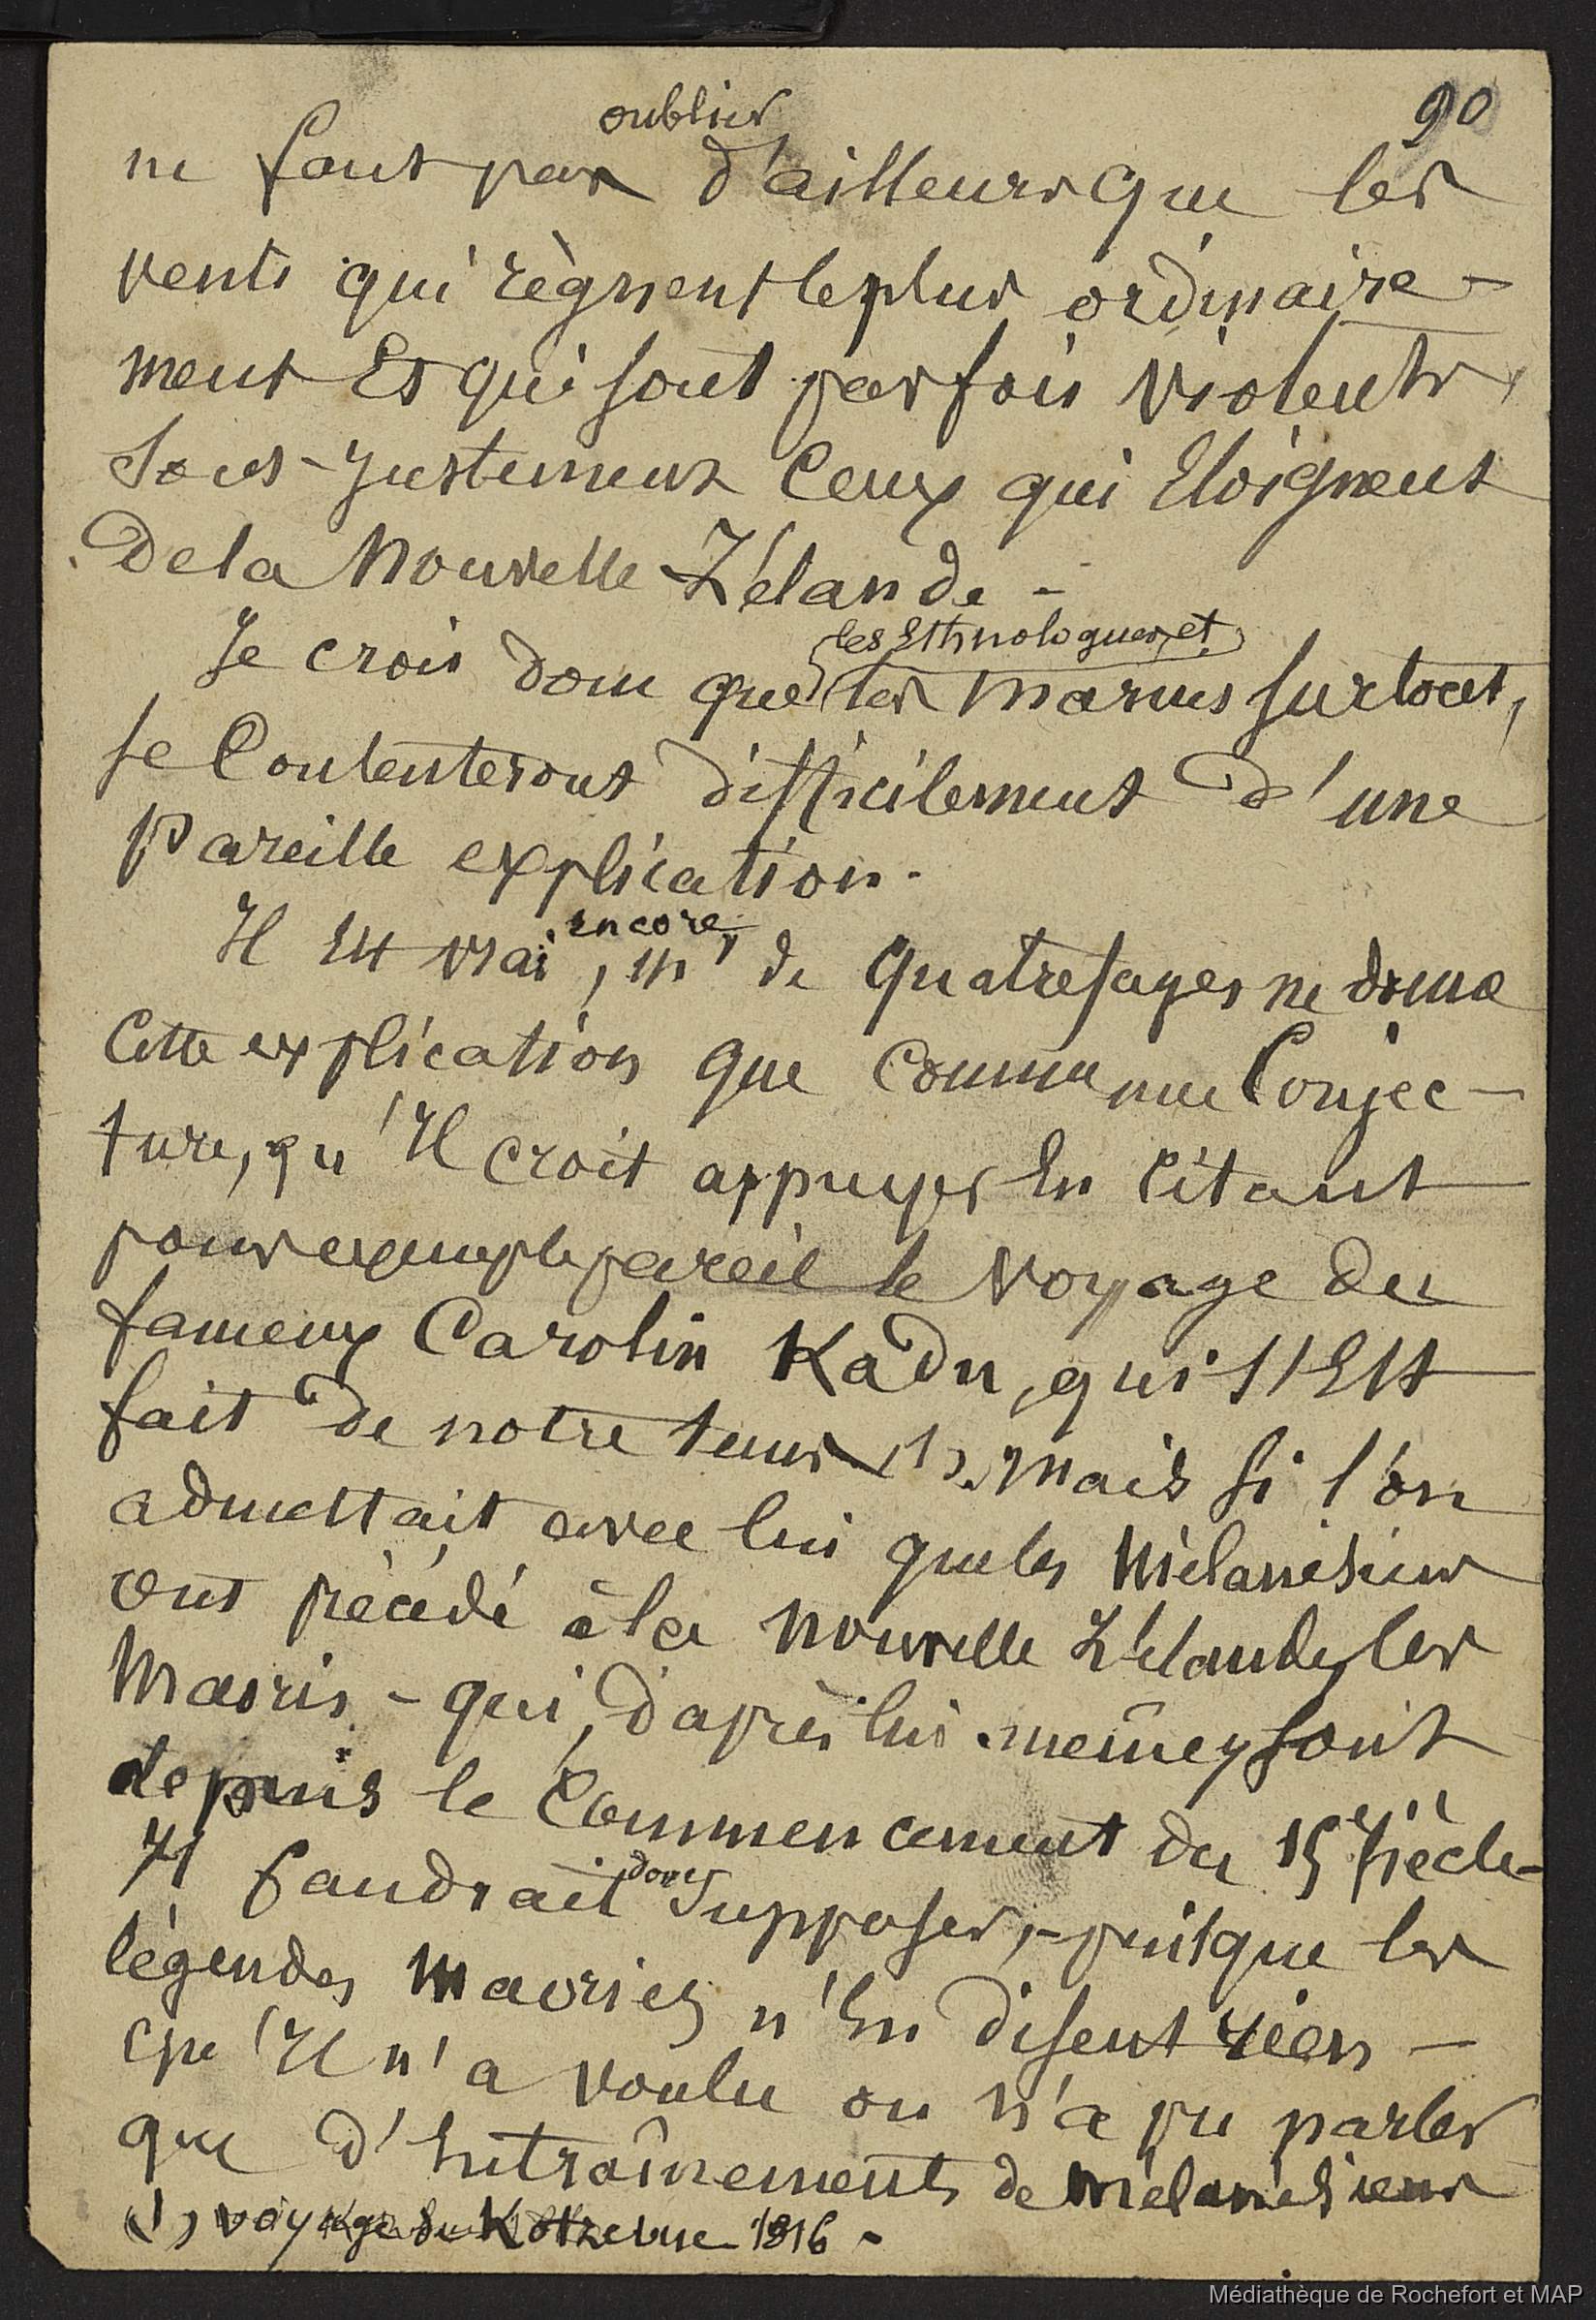 90
oublier
ne faut pas d'ailleurs que les
vents qui règnent le plus ordinaire-
ment et qui sont parfois violents,
sont justement ceux qui éloignent
de la Nouvelle Zélande -
les Ethnologues, et
Je crois donc que les marins surtout,
se contenteront difficilement d'une
pareille explication.
encore,
Il est vrai, Mr de Quatrefages ne donne
cette explication que comme une conjec-
ture, qu'Il croit appuyer en citant
pour exemple pareil le voyage du
fameux Carolin Kadu, qui s'est
fait de notre temps (1). Mais si l'on
admettait avec lui que les Mélanésiens
ont précédé à la Nouvelle Zélande, les
Maoris - qui, d'après lui même y sont
depuis le commencement du 15e siècle -
donc
Il faudrait supposer, - puisque les
légendes maories n'en disent rien -
qu'Il n'a voulu ou n'a pu parler
que d'entraînements de Mélanésiens
(1) voyage de Kotzebue 1816 -
Médiathèque de Rochefort et MAP